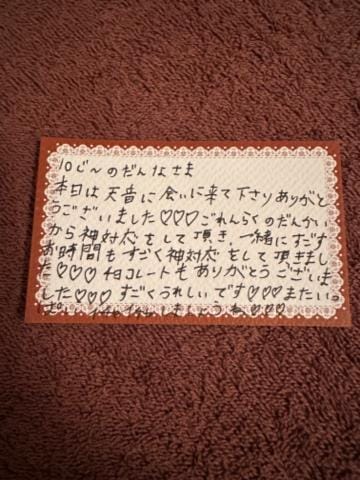 10じ〜のだんなさま
本日は天音に会いに来て下さりありがと
うございました♡♡♡ごれんらくのだんかい
から神対応をして頂き、一緒にすごす
お時間もすごく神対応をして頂きまし
た♡♡♡チョコレートもありがとうございま
した♡♡♡すごくうれしいです♡♡♡またいっ
ぱい しましょうね♡♡♡